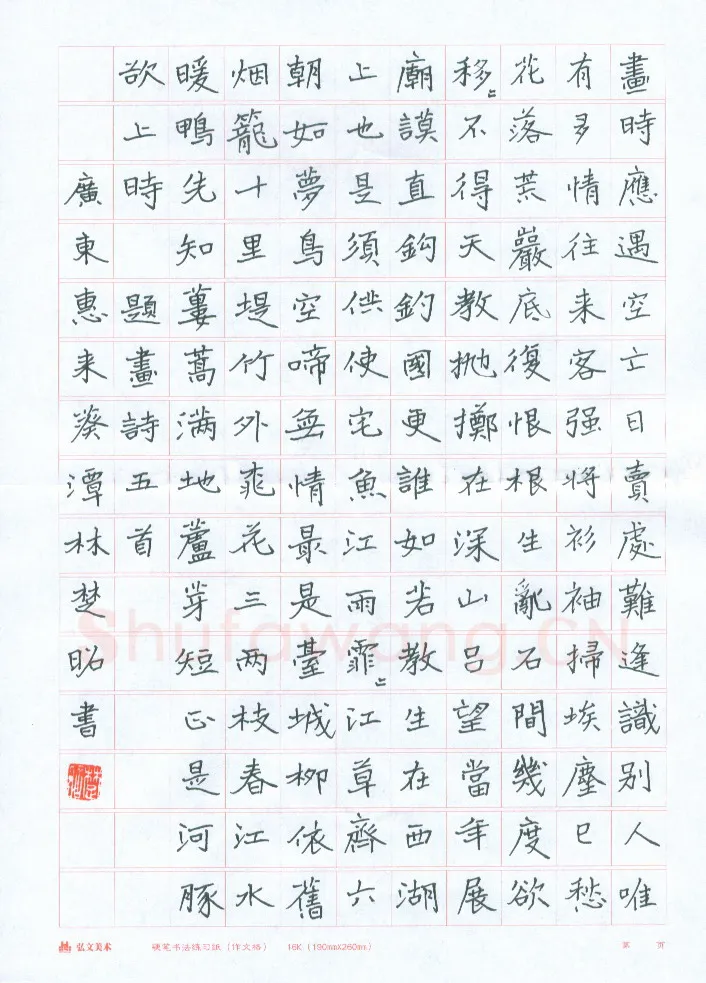 畫時應遇空亡日賣處難逢識别人唯
有多情往来客强將衫袖掃埃塵已愁
花落荒巖底復恨根生亂石間幾度欲
移〻不得天教抛擲在深山吕望當年展
廟謨直鈎釣國更誰如若教生在西湖
上也是須供使宅魚江雨霏〻江草齊六
朝如夢鳥空啼無情最是臺城柳依舊
烟籠十里堤竹外桃花三两枝春江水
暖鴨先知蔞蒿满地蘆芽短正是河豚
欲上時 題畫詩五首
廣東惠来葵潭林楚昭書
Shufawang.CN
弘文美术 硬笔书法练习纸（作文格） 16K（190mmX260mm） 第 页